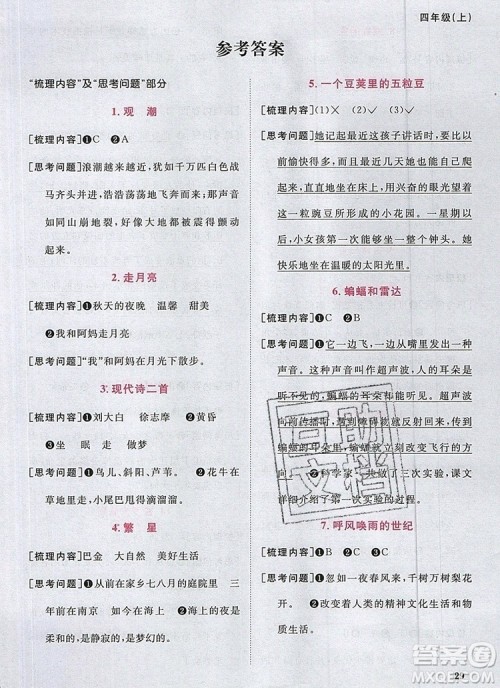 四年级(上)
参考答案
“梳理内容”及“思考问题”部分
1.观 潮
[梳理内容]❶C ❷A
[思考问题]浪潮越来越近，犹如千万匹白色战
马齐头并进，浩浩荡荡地飞奔而来；那声音
如同山崩地裂，好像大地都被震得颤动
起来。
2.走月亮
[梳理内容]❶秋天的夜晚 温馨 甜美
❷我和阿妈走月亮
[思考问题]“我”和阿妈在月光下散步。
3.现代诗二首
[梳理内容]❶刘大白 徐志摩 ❷黄昏
❸望 坐 眠 走 做梦
[思考问题]❶鸟儿、斜阳、芦苇。 ❷花牛在
草地里走，小尾巴甩得滴溜溜。
4.繁 星
[梳理内容]巴金 大自然 美好生活
[思考问题]❶从前在家乡七八月的庭院里 三
年前在南京 海上 ❷美好的生活是动态
的、柔和的，是静寂的，是梦幻的。
5.一个豆荚里的五粒豆
[梳理内容](1)× (2)✓ (3)✓
[思考问题]她记起最近这孩子讲话时，要比以
前愉快得多，而且最近几天她也能自己爬起
来，直直地坐在床上，用兴奋的眼光望着这
一粒豌豆所形成的小花园。一星期以
后，小女孩第一次能够坐一整个钟头。她
快乐地坐在温暖的太阳光里。
6.蝙蝠和雷达
[思考问题]❶它一边飞，一边从嘴里发出一种
声音。这种声音叫作超声波，人的耳朵是
听不见的，蝙蝠的耳朵却能听见。超声波
向前传播时，遇到障碍物就反射回来，传到
蝙蝠的耳朵里，蝙蝠就立刻改变飞行的方
向。 ❷科学家一共做了三次实验，课文
详细写了第一次实验。
7.呼风唤雨的世纪
[梳理内容]❶B ❷C
[思考问题]❶忽如一夜春风来，千树万树梨花
开。 ❷改变着人类的精神文化生活 改
变着人类的物质生活
29
互助文档
答案圈
MXQE.COM